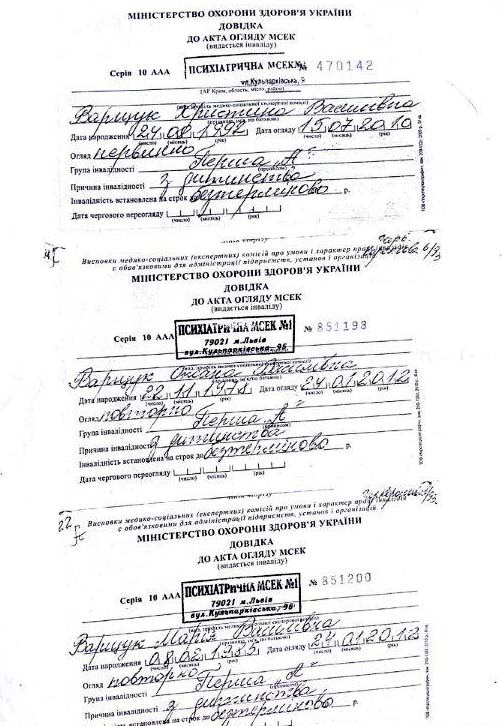 МІНІСТЕРСТВО ОХОРОНИ ЗДОРОВ'Я УКРАЇНИ
ДОВІДКА
ДО АКТА ОГЛЯДУ МСЕК
(видається інваліду)
Серія 10 ААА ПСИХІАТРИЧНА МСЕК № 470142
вул.Кульпарківська, 9
(АР Крим, область, місто, район)
Варицук Христина Василівна
Дата народження 24.08.1992 Дата огляду 15.07.2010
(число) (місяць) (рік) (число) (місяць) (рік)
Огляд первинно
Група інвалідності Перша "А"
Причина інвалідності з дитинства
Інвалідність встановлена на строк до безтерміново р.
Дата чергового переогляду р.
(число) (місяць) (рік)
Висновки медико-соціальних (експертних) комісій про умови і характер праці
є обов'язковими для адміністрації підприємств, установ і організацій.
МІНІСТЕРСТВО ОХОРОНИ ЗДОРОВ'Я УКРАЇНИ
ДОВІДКА
ДО АКТА ОГЛЯДУ МСЕК
(видається інваліду)
Серія 10 ААА ПСИХІАТРИЧНА МСЕК №1 № 851193
79021 м.Львів
вул.Кульпарківська, 95
Варицук Василівна
Дата народження 22.11.1978 Дата огляду 24.01.2012
(число) (місяць) (рік) (число) (місяць) (рік)
Огляд повторно
Група інвалідності Перша "А"
Причина інвалідності з дитинства
Інвалідність встановлена на строк до безтерміново р.
Дата чергового переогляду р.
(число) (місяць) (рік)
Висновки медико-соціальних (експертних) комісій про умови і характер праці
є обов'язковими для адміністрації підприємств, установ і організацій.
МІНІСТЕРСТВО ОХОРОНИ ЗДОРОВ'Я УКРАЇНИ
ДОВІДКА
ДО АКТА ОГЛЯДУ МСЕК
(видається інваліду)
Серія 10 ААА ПСИХІАТРИЧНА МСЕК №1 № 851200
79021 м.Львів
вул.Кульпарківська, 95
Варицук Марія Василівна
Дата народження 08.02.1983 Дата огляду 24.01.2012
(число) (місяць) (рік) (число) (місяць) (рік)
Огляд повторно
Група інвалідності Перша "А"
Причина інвалідності з дитинства
встановлена на строк до безтерміново